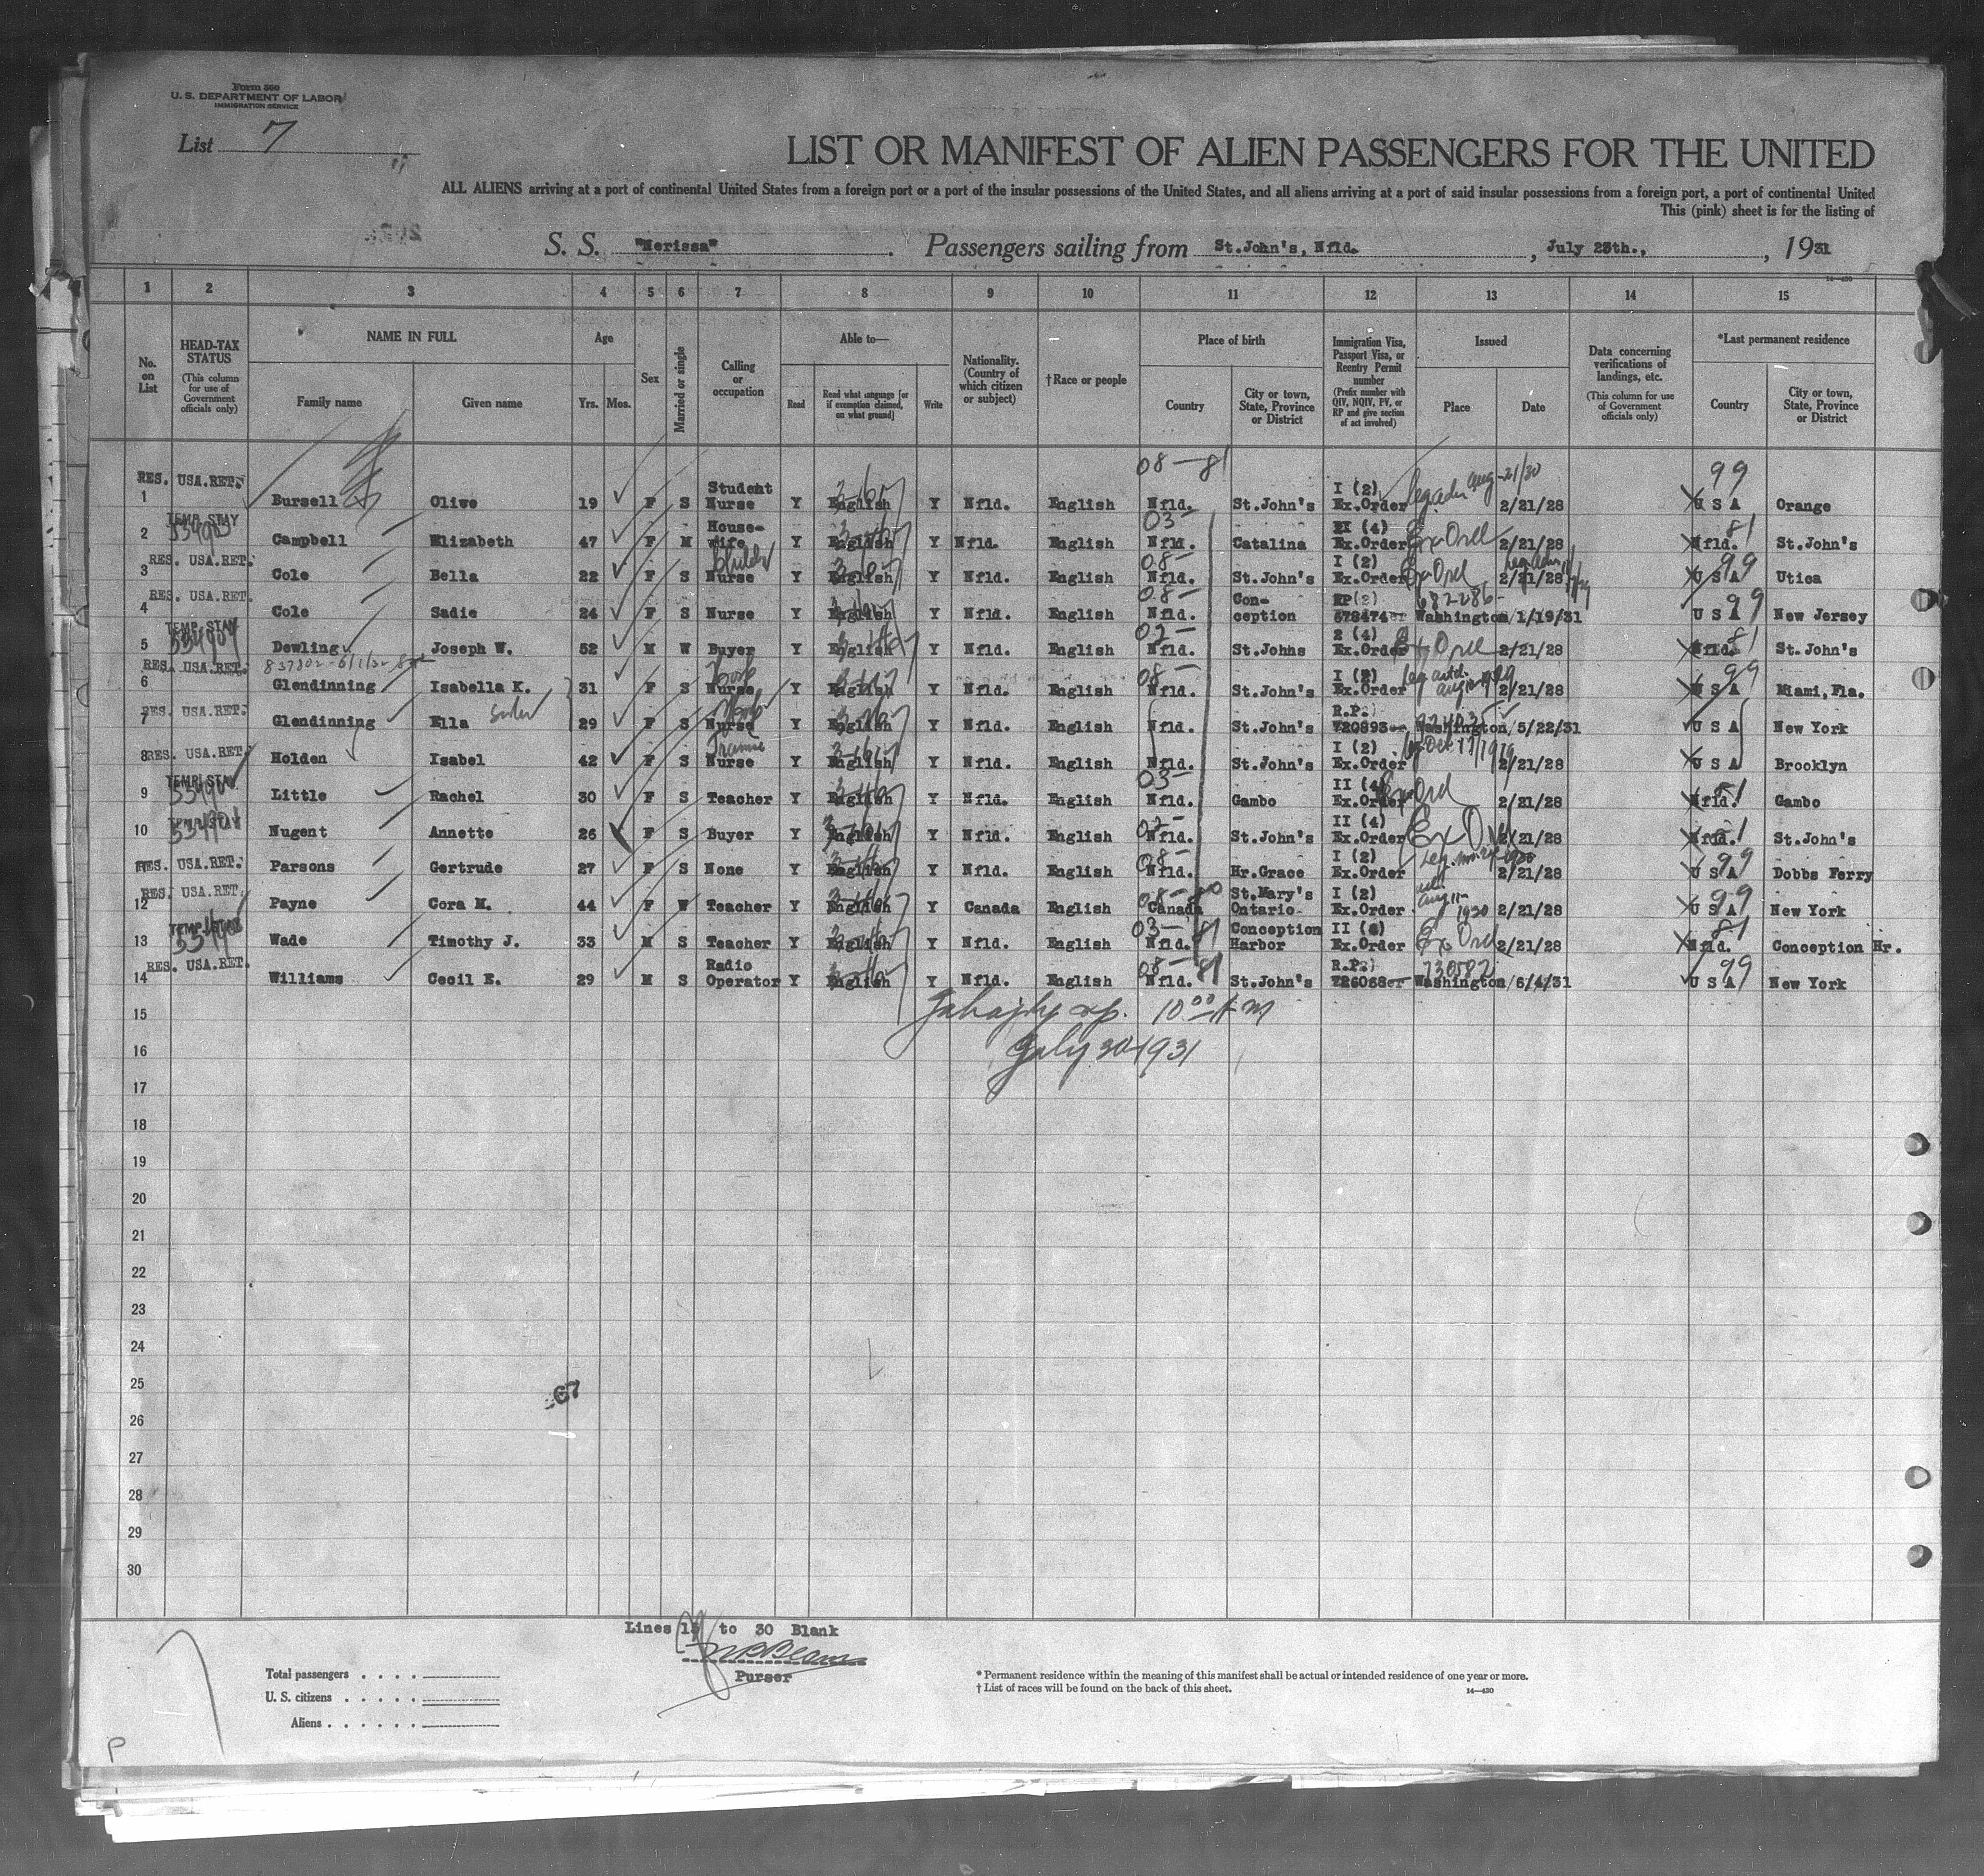 Form 500
U. S. DEPARTMENT OF LABOR
IMMIGRATION SERVICE
List 7
LIST OR MANIFEST OF ALIEN PASSENGERS FOR THE UNITED
ALL ALIENS arriving at a port of continental United States from a foreign port or a port of the insular possessions of the United States, and all aliens arriving at a port of said insular possessions from a foreign port, a port of continental United
This (pink) sheet is for the listing of
S. S. "Nerissa". Passengers sailing from St.John's, Nfld., July 25th., , 1931
1 2 3 4 5 6 7 8 9 10 11 12 13 14 15
No. on List
HEAD-TAX STATUS (This column for use of Government officials only)
NAME IN FULL
Family name Given name
Age Yrs. Mos.
Sex
Married or single
Calling or occupation
Able to—
Read Read what language [or if exemption claimed, on what ground] Write
Nationality. (Country of which citizen or subject)
†Race or people
Place of birth
Country City or town, State, Province or District
Immigration Visa, Passport Visa, or Reentry Permit number (Prefix number with QIV, NQIV, PV, or RP and give section of act involved)
Issued
Place Date
Data concerning verifications of landings, etc. (This column for use of Government officials only)
*Last permanent residence
Country City or town, State, Province or District
14—430
08—81 99
RES. USA.RET.
1 Bursell Olive 19 F S Student Nurse Y English Y Nfld. English Nfld. St.John's I (2) Ex.Order Aug-21/30 2/21/28 U S A Orange
TEMP. STAY
2 Campbell Elizabeth 47 F M House-wife Y English Y Nfld. English 03- Nfld. Catalina II (4) Ex.Order Ex Ord 2/21/28 Nfld. 81 St.John's
RES. USA.RET.
3 Cole Bella 22 F S Nurse Y English Y Nfld. English 08- Nfld. St.John's I (2) Ex.Order Ex Ord 2/21/28 U S A 99 Utica
RES. USA.RET.
4 Cole Sadie 24 F S Nurse Y English Y Nfld. English 08- Nfld. Con-ception RP(2) 678474 682286 Washington/1/19/31 U S A 99 New Jersey
TEMP. STAY
5 Dowling Joseph W. 52 M W Buyer Y English Y Nfld. English 02- Nfld. St.Johns 2 (4) Ex.Order Ex Ord 2/21/28 Nfld. 81 St.John's
RES. USA.RET.
6 Glendinning Isabella K. 31 F S Nurse Cook Y English Y Nfld. English 08- Nfld. St.John's I (2) Ex.Order 2/21/28 U S A 99 Miami,Fla.
RES. USA.RET.
7 Glendinning Ella sister 29 F S Nurse Y English Y Nfld. English Nfld. St.John's R.P. 720893 Washington/5/22/31 U S A New York
RES. USA.RET.
8 Holden Isabel 42 F S Nurse Y English Y Nfld. English Nfld. St.John's I (2) Ex.Order 2/21/28 U S A Brooklyn
TEMP. STAY
9 Little Rachel 30 F S Teacher Y English Y Nfld. English 03- Nfld. Gambo II (4) Ex.Order Ex Ord 2/21/28 Nfld. 81 Gambo
10 Nugent Annette 26 F S Buyer Y English Y Nfld. English 02- Nfld. St.John's II (4) Ex.Order Ex Ord 2/21/28 Nfld. 81 St.John's
RES. USA.RET.
Parsons Gertrude 27 F S None Y English Y Nfld. English 08- Nfld. Hr.Grace I (2) Ex.Order 2/21/28 U S A 99 Dobbs Ferry
RES. USA.RET.
12 Payne Cora M. 44 F W Teacher Y English Y Canada English 08- Canada St.Mary's Ontario I (2) Ex.Order Aug 11- 1930 2/21/28 U S A 99 New York
TEMP.
13 Wade Timothy J. 33 M S Teacher Y English Y Nfld. English 03-81 Nfld. Conception Harbor II (4) Ex.Order Ex Ord 2/21/28 Nfld. 81 Conception Hr.
RES. USA.RET.
14 Williams Cecil E. 29 M S Radio Operator Y English Y Nfld. English 08-81 Nfld. St.John's R.P. 726068 730582 Washington/6/4/31 U S A 99 New York
15 10 00 A M
16 July 30 1931
17
18
19
20
21
22
23
24
25
67
26
27
28
29
30
Lines 15 to 30 Blank
Purser
Total passengers . . . .
U. S. citizens . . . . .
Aliens . . . . . .
* Permanent residence within the meaning of this manifest shall be actual or intended residence of one year or more.
† List of races will be found on the back of this sheet.
14—430
P